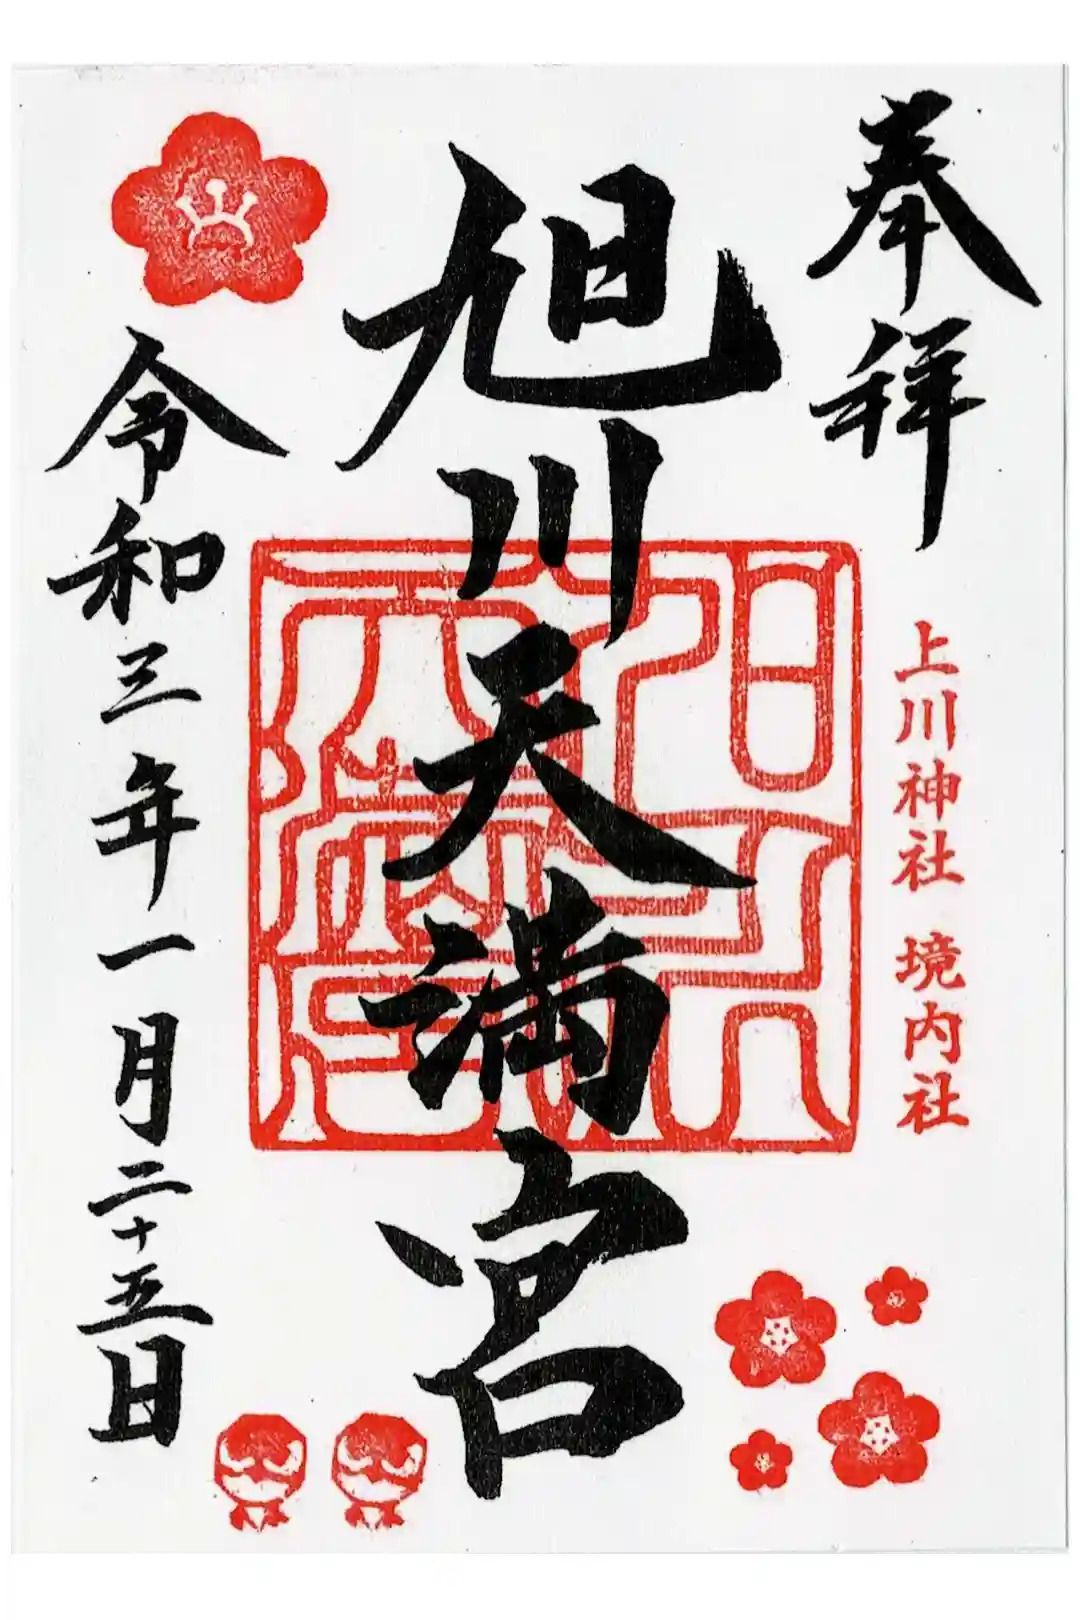 奉拝
上川神社 境内社
旭川天満宮
令和三年一月二十五日